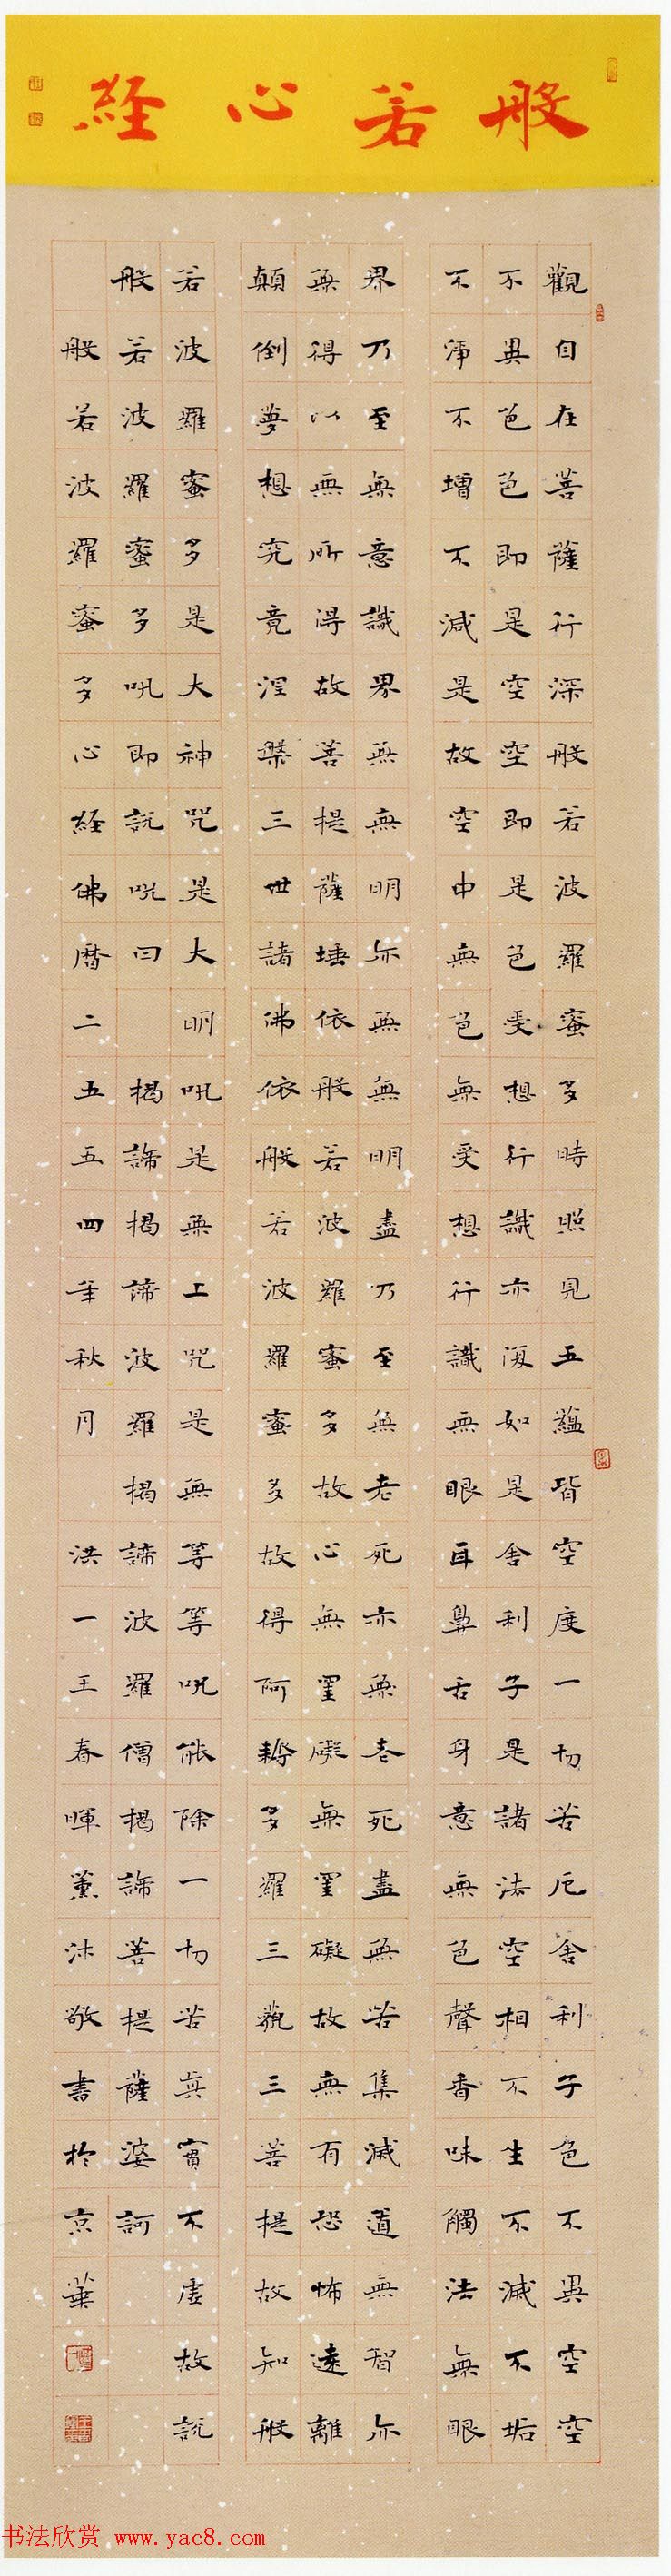 般若心経
觀自在菩薩行深般若波羅蜜多時照見五蘊皆空度一切苦厄舍利子色不異空空
不異色色即是空空即是色受想行識亦復如是舍利子是諸法空相不生不滅不垢
不淨不增不減是故空中無色無受想行識無眼耳鼻舌身意無色聲香味觸法無眼
界乃至無意識界無無明亦無無明盡乃至無老死亦無老死盡無苦集滅道無智亦
無得以無所得故菩提薩埵依般若波羅蜜多故心無罣礙無罣礙故無有恐怖遠離
顛倒夢想究竟涅槃三世諸佛依般若波羅蜜多故得阿耨多羅三藐三菩提故知般
若波羅蜜多是大神咒是大明咒是無上咒是無等等咒能除一切苦真實不虛故說
般若波羅蜜多咒即說咒曰 揭諦揭諦波羅揭諦波羅僧揭諦菩提薩婆訶
般若波羅蜜多心経佛曆二五五四年秋月 洪一王春暉薰沐敬書於京華
书法欣赏 www.yac8.com